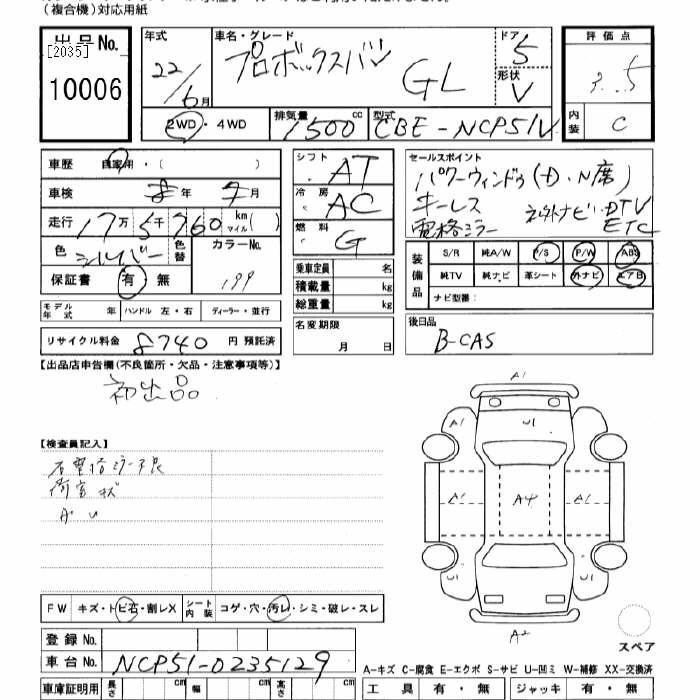 (複合機)対応用紙
出品No.
[2035]
10006
年式 22/6月
車名・グレード プロボックスバン GL
ドア 5
形状 V
評価点 3.5
内装 C
2WD・4WD
排気量 1500 cc
型式 CBE-NCP51V
車歴 自家用・( )
車検 8年 7月
走行 17万 5千 760 km マイル( )
色 シルバー 色替 カラーNo. 199
保証書 有・無
シフト AT
冷房 AC
燃料 G
乗車定員 名
積載量 kg
総重量 kg
名変期限 月 日
セールスポイント
パワーウィンドゥ(D・N席)
キーレス ネット外ナビ・DTV
電格ミラー ETC
装備品 S/R 純A/W P/S P/W ABS
純TV 純ナビ 革シート 外ナビ エアB
ナビ型番:
モデル年式 年 ハンドル 左・右 ディーラー・並行
リサイクル料金 8740 円 預託済
後日品
B-CAS
【出品店申告欄(不良箇所・欠品・注意事項等)】
初出品
【検査員記入】
右電格ミラー不良
荷室状
A・U
A1
A1 U1
A1 A4 A1
U1 U1
A2
スペア
FW キズ・トビ石・割レX シート内装 コゲ・穴・汚レ・シミ・破レ・スレ
登録No.
車台No. NCP51-0235129
A-キズ C-腐食 E-エクボ S-サビ U-凹ミ W-補修 XX-交換済
車庫証明用 長さ cm 幅 cm 高さ cm
工具 有・無 ジャッキ 有・無